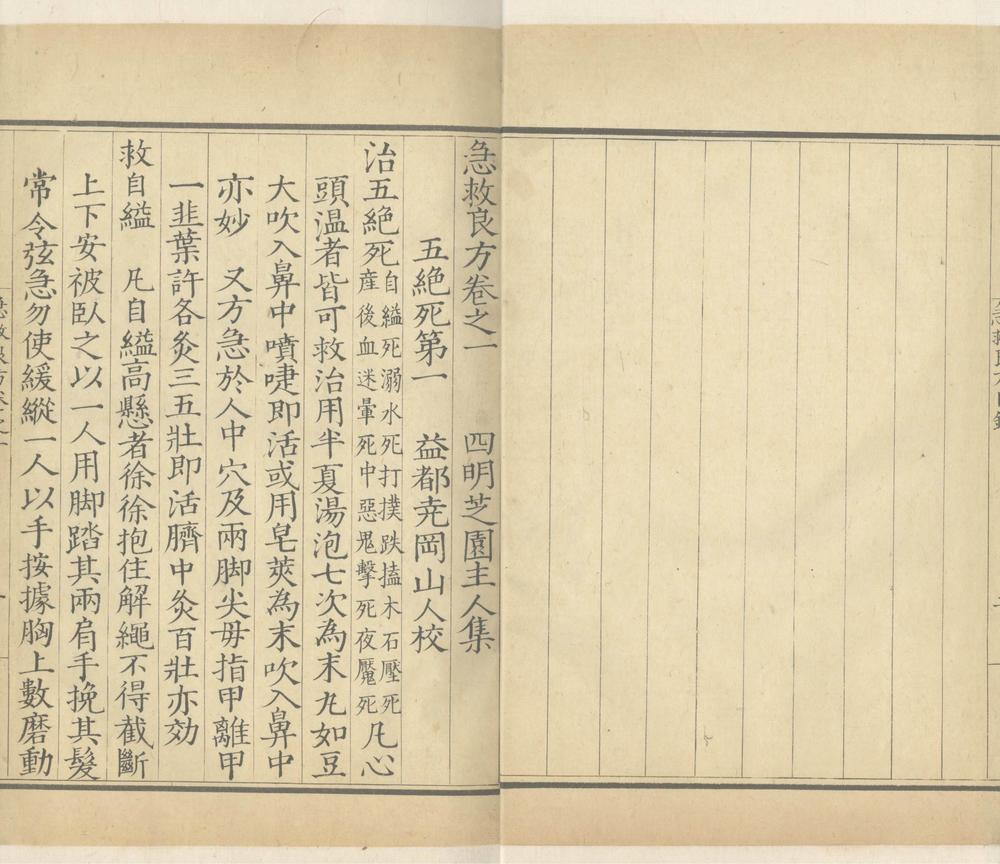 急救良方卷之一　四明芝園主人集
五絶死第一　益都尭岡山人校
治五絶死自縊死溺水死打撲跌搕木石壓死産後血迷暈死中惡鬼擊死夜魘死凡心
頭温者皆可救治用半夏湯泡七次為末丸如豆
大吹入鼻中噴嚏即活或用皂莢為末吹入鼻中
亦妙　又方急於人中穴及兩脚尖毋指甲離甲
一韭葉許各灸三五壯即活臍中灸百壯亦効
救自縊　凡自縊高懸者徐徐抱住解繩不得截斷
上下安被臥之以一人用脚踏其兩肩手挽其髮
常令弦急勿使緩縱一人以手按據胸上數磨動